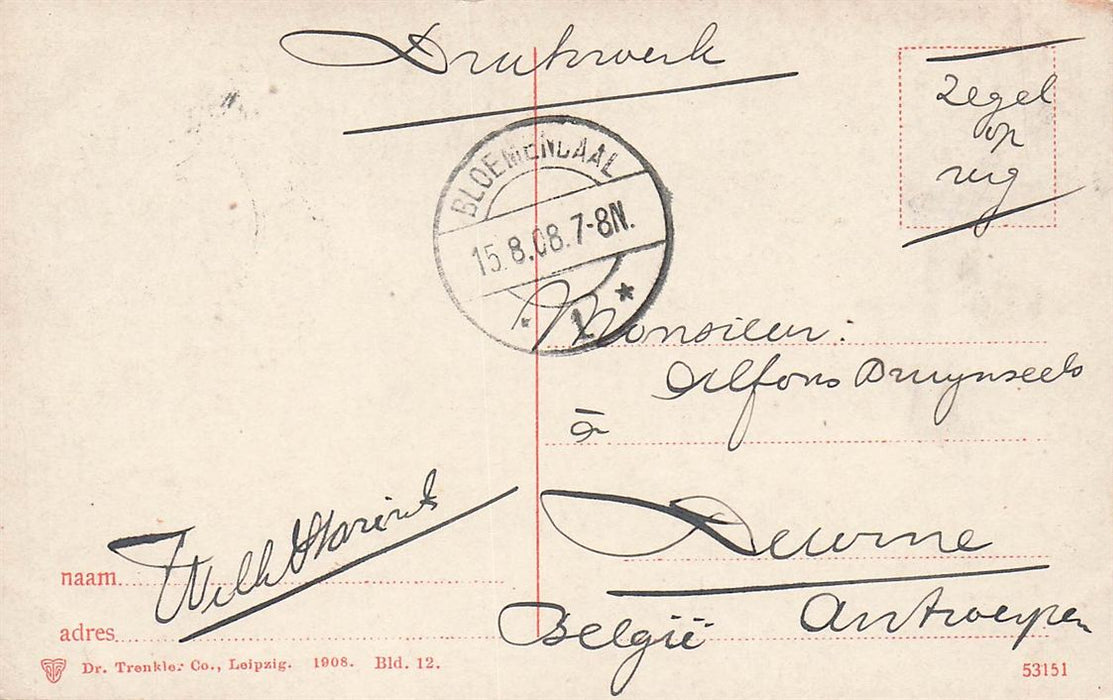 Drukwerk
Zegel
op
rug
BLOEMENDAAL
15.8.08.7-8N.
* 1 *
Monsieur:
Alfons Bruynseels
à
Deurne
België Antwerpen
Will
naam
adres
Dr. Trenkler Co., Leipzig. 1908. Bld. 12.
53151